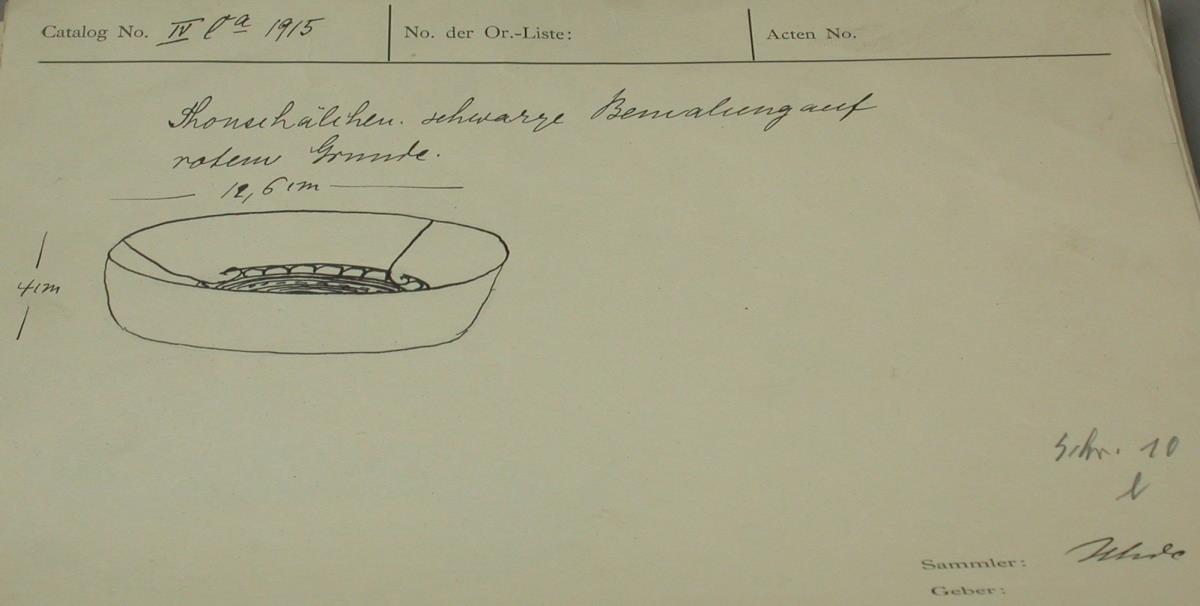 Catalog No. IV Ca 1915
No. der Or.-Liste:
Acten No.
Thonschälchen. schwarze Bemalung auf
rotem Grunde.
12,6 cm
4 cm
Schr. 10
l
Sammler: Uhde
Geber: